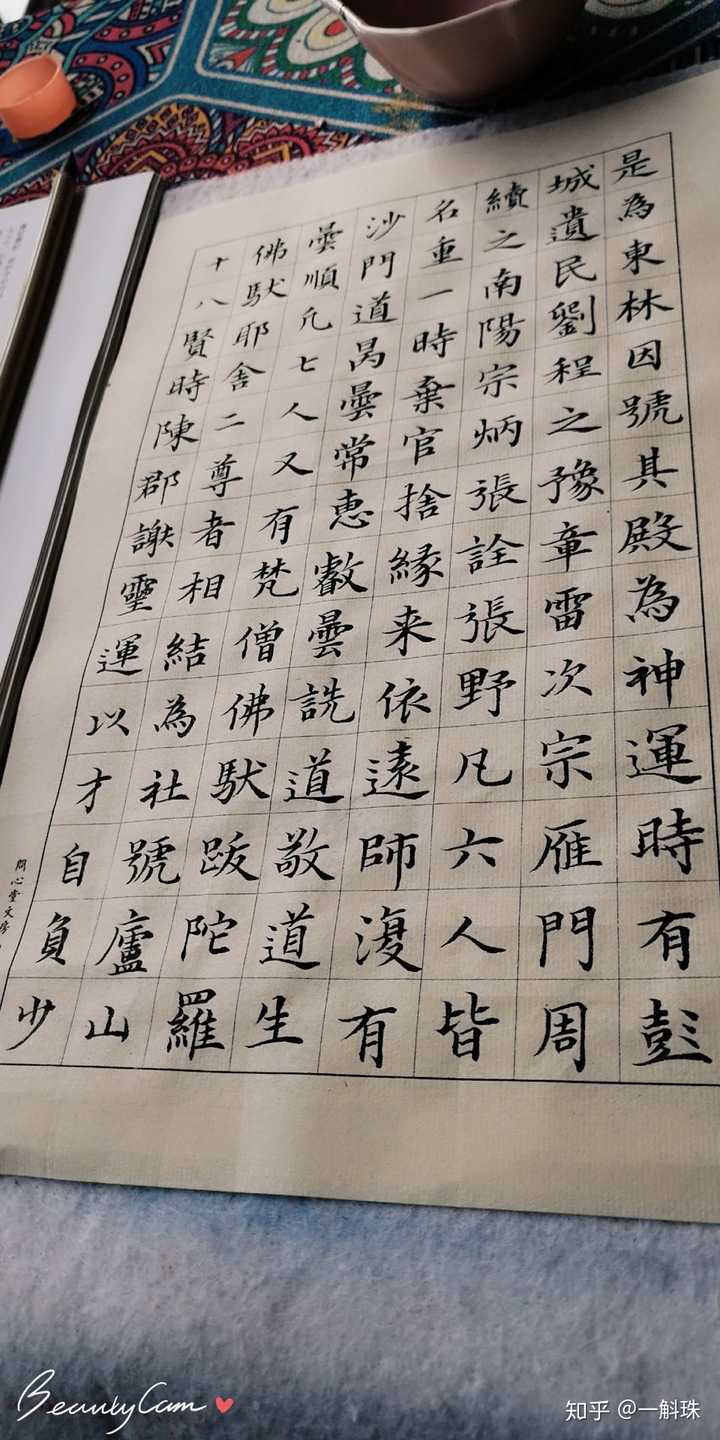 是為東林因號其殿為神運時有彭
城遺民劉程之豫章雷次宗雁門周
續之南陽宗炳張詮張野凡六人皆
名重一時棄官捨緣来依遠師復有
沙門道昺曇常惠叡曇詵道敬道生
曇順凢七人又有梵僧佛馱跋陀羅
佛馱耶舍二尊者相結為社號廬山
十八賢時陳郡謝靈運以才自負少
問心堂文房
BeautyCam
知乎 @一斛珠